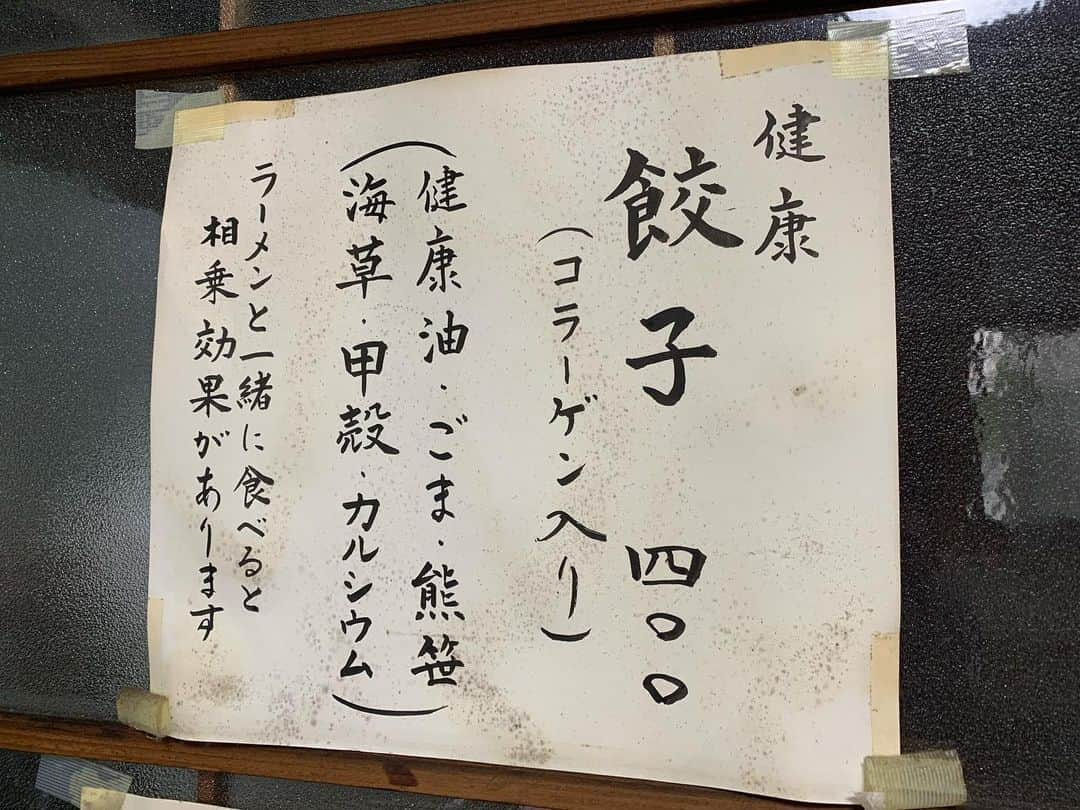 健康
餃子 四〇〇
(コラーゲン入り)
(健康油・ごま・熊笹
海草・甲殻・カルシウム)
ラーメンと一緒に食べると
相乗効果があります